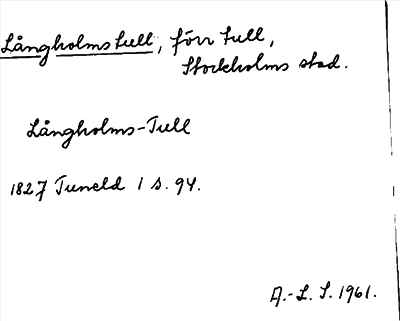 Långholmstull, förr tull,
Stockholms stad.
Långholms-Tull
1827 Tuneld 1 s. 94.
A.-L. S. 1961.